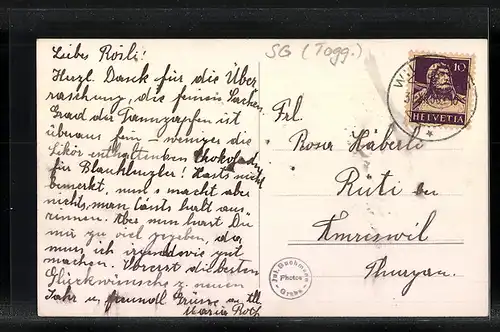 SG (Togg.)
Liebes Rösli!
Herzl. Dank für die Über
raschung, die feinen Sachen.
Grad der Tannzapfen ist
überaus fein – weniger die
Likör enthaltenden Chokolad.
für Blaukreuzler! Hasts nicht
bemerkt, nun s'macht aber
nichts, man lässts halt aus"
rinnen. Aber nun hast Du
mir zu viel gegeben, das
muss ich irgendwie gut
machen. die besten
Glückwünsche z. neuen
Jahr u. freundl. Grüsse
Maria Roth
10
HELVETIA
Frl.
Rosa Häberli
Rüti
Amriswil
Thurgau.
Photos
Grabs